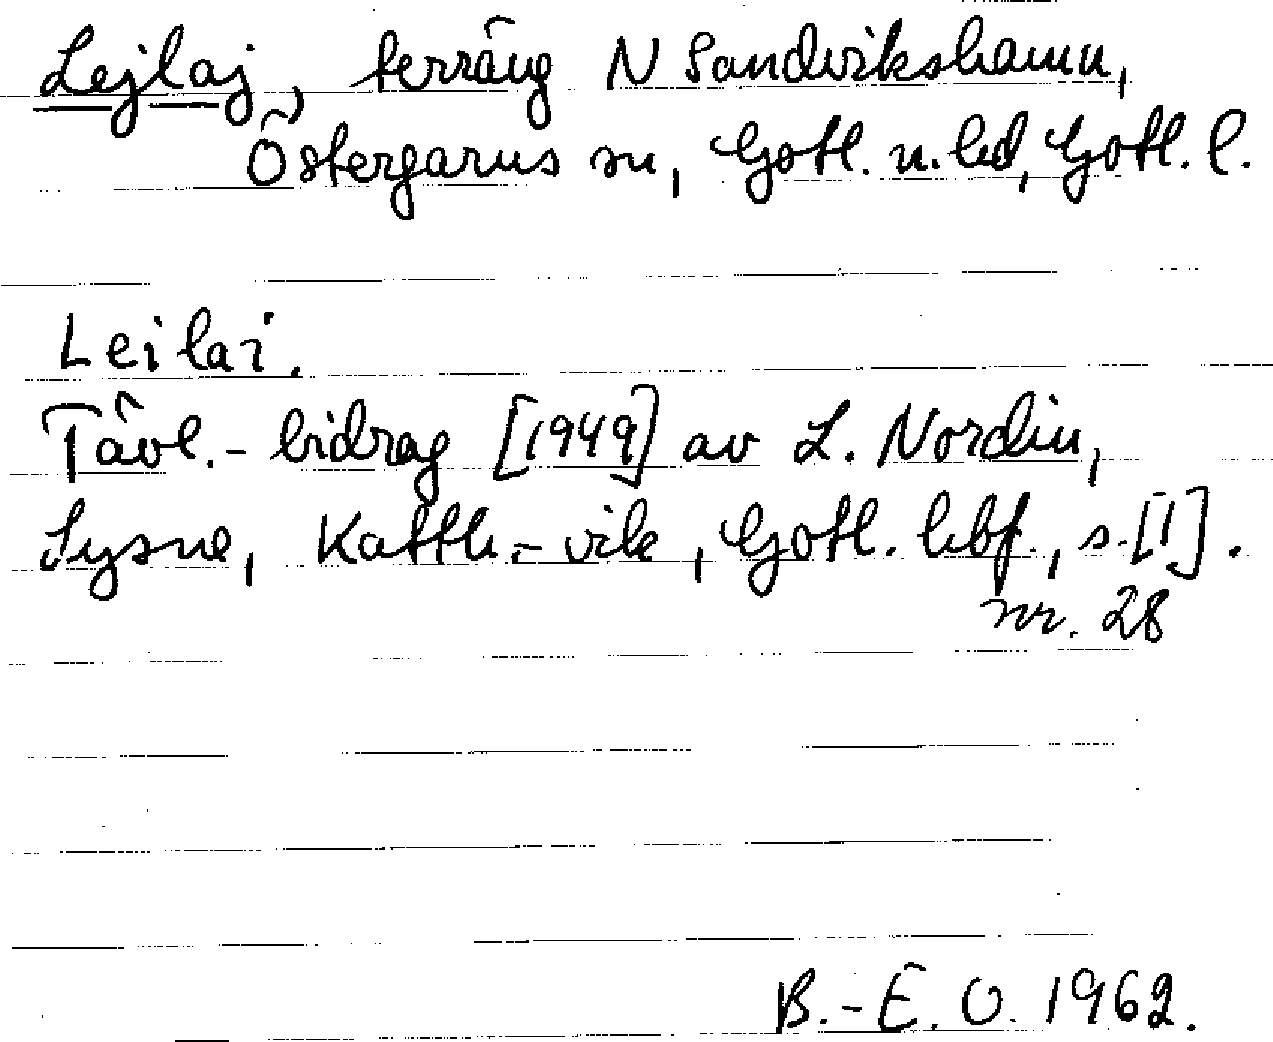 Lejlaj, terräng N Sandvikshamn,
Östergarns sn, Gotl. n. hd, Gotl. l.
Leilai.
Tävl.-bidrag [1949] av L. Nordin,
Sysne, Katth.-vik, Gotl. hbf., s. [1].
nr. 28
B.-E. O. 1962.